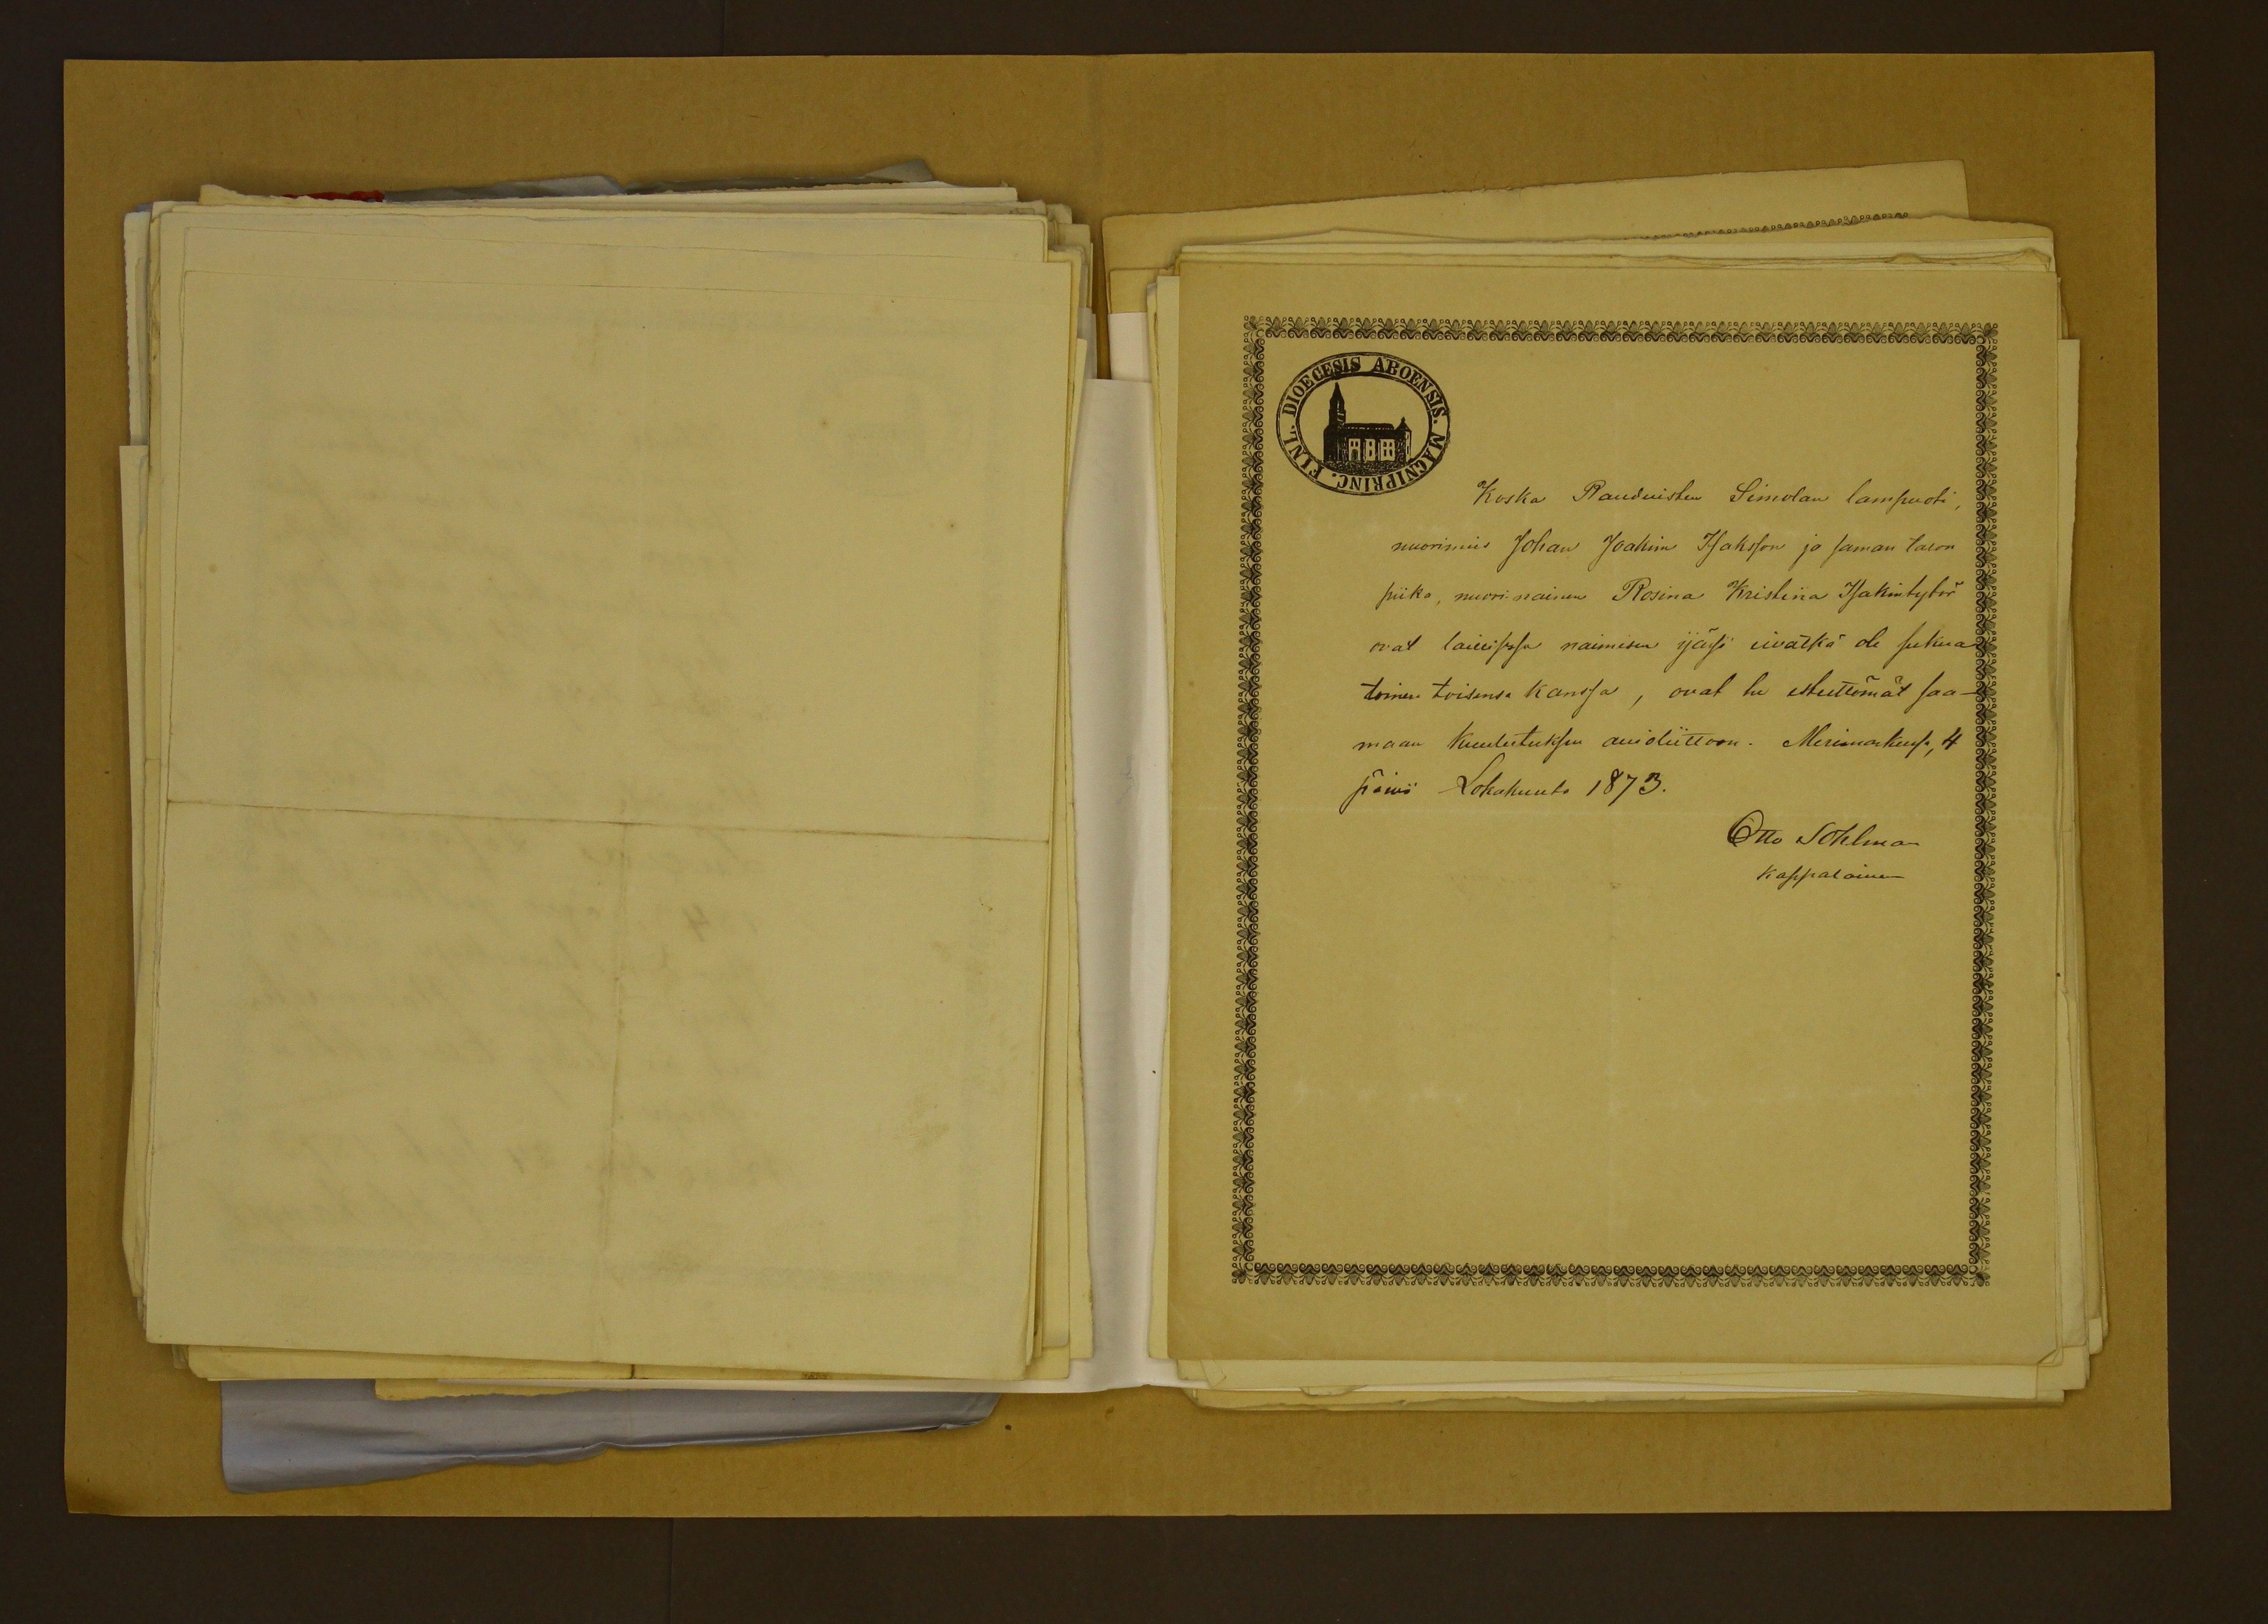 DIOECESIS ABOENSIS. MAGNIPRINC. FINL.
Koska Rauduisten Simolan lampuoti,
nuorimies Johan Joakim Isaksson ja saman talon
piika, nuori nainen Rosina Kristina Isakintytör
ovat laillisessa naimisen ijässä eivätkä ole sukua
toinen toisensa kanssa, ovat he esteettömät saa-
maan kuulutuksen avioliittoon. Merimaskussa, 4
päivä Lokakuuta 1873.
Otto Sohlman
Kappalainen